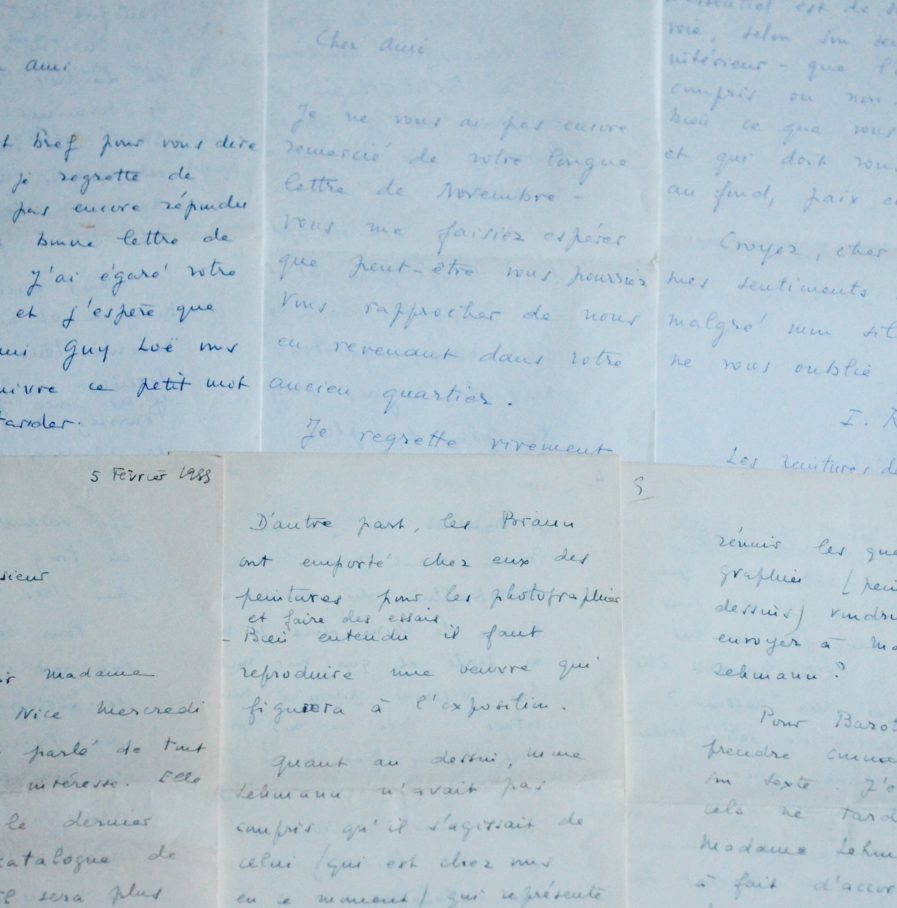 ami
bref pour vous dire
je regrette de
pas encore répondu
bonne lettre de
J'ai égaré votre
et j'espère que
Guy Loë vous
ce petit mot
tarder.
Cher ami
Je ne vous ai pas encore
remercié de votre longue
lettre de Novembre -
vous me faisiez espérer
que peut-être vous pourriez
vous rapprocher de nous
en revenant dans votre
ancien quartier.
Je regrette vivement
est de
voie, selon son
intérieur - que
compris ou non
bien ce que vous
et qui doit
au fond, paix
Croyez, cher
mes sentiments
malgré mon
ne vous oublie
I. R
Les peintures
5 Février 1983
sieur
Madame
Nice Mercredi
parlé de tout
intéresse. Elle
le dernier
catalogue de
sera plus
D'autre part, les
ont emporté chez eux des
peintures pour les photographier
et faire des essais
- Bien entendu il faut
reproduire une oeuvre qui
figurera à l'exposition.
Quant au dessin, Mme
Lehmann n'avait pas
compris qu'il s'agissait de
celui (qui est chez nous
en ce moment) qui représente
réunir les
graphies
dessins)
envoyer à
Lehmann ?
Pour
prendre
son texte
cela ne
Madame
à fait